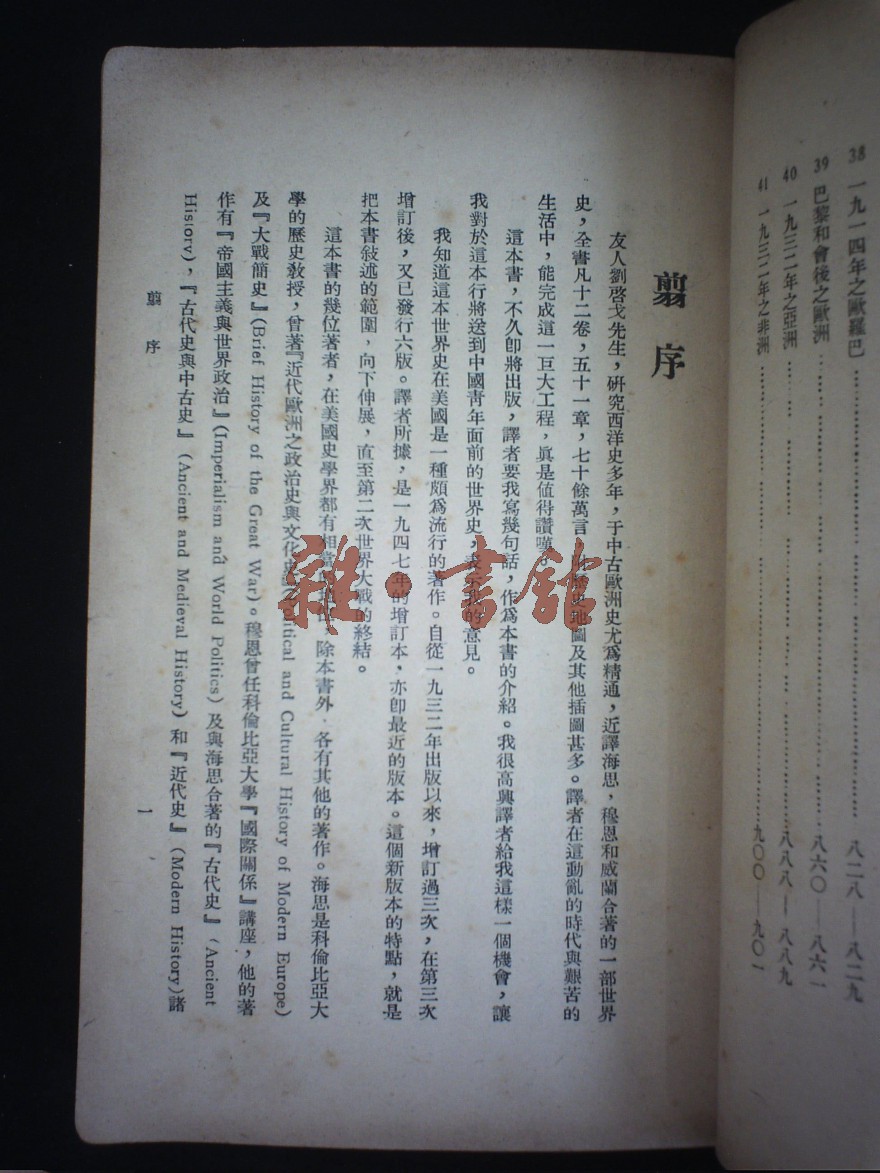 38 一九一四年之歐羅巴……………………八二八—八二九
39 巴黎和會後之歐洲……………………八六〇—八六一
40 一九三二年之亞洲……………………八八八—八八九
41 一九三二年之非洲……………………九〇〇—九〇一
翦序
友人劉啓戈先生，研究西洋史多年，于中古歐洲史尤爲精通，近譯海思，穆恩和威蘭合著的一部世界
史，全書凡十二卷，五十一章，七十餘萬言 歷史地圖及其他插圖甚多。譯者在這動亂的時代與艱苦的
生活中，能完成這一巨大工程，眞是値得讚嘆。
這本書，不久卽將出版，譯者要我寫幾句話，作爲本書的介紹。我很高興譯者給我這樣一個機會，讓
我對於這本行將送到中國靑年面前的世界史，表示我的意見。
我知道這本世界史在美國是一種頗爲流行的著作。自從一九三二年出版以來，增訂過三次，在第三次
增訂後，又已發行六版。譯者所據，是一九四七年的增訂本，亦卽最近的版本。這個新版本的特點，就是
把本書敍述的範圍，向下伸展，直至第二次世界大戰的終結。
這本書的幾位著者，在美國史學界都有相當 除本書外，各有其他的著作。海思是科倫比亞大
學的歷史敎授，曾著『近代歐洲之政治史與文化史』(Political and Cultural History of Modern Europe)
及『大戰簡史』(Brief History of the Great War)。穆恩曾任科倫比亞大學『國際關係』講座，他的著
作有『帝國主義與世界政治』(Imperialism and World Politics) 及與海思合著的『古代史』(Ancient
History)，『古代史與中古史』(Ancient and Medieval History) 和『近代史』(Modern History) 諸
翦序
1
雜·書館